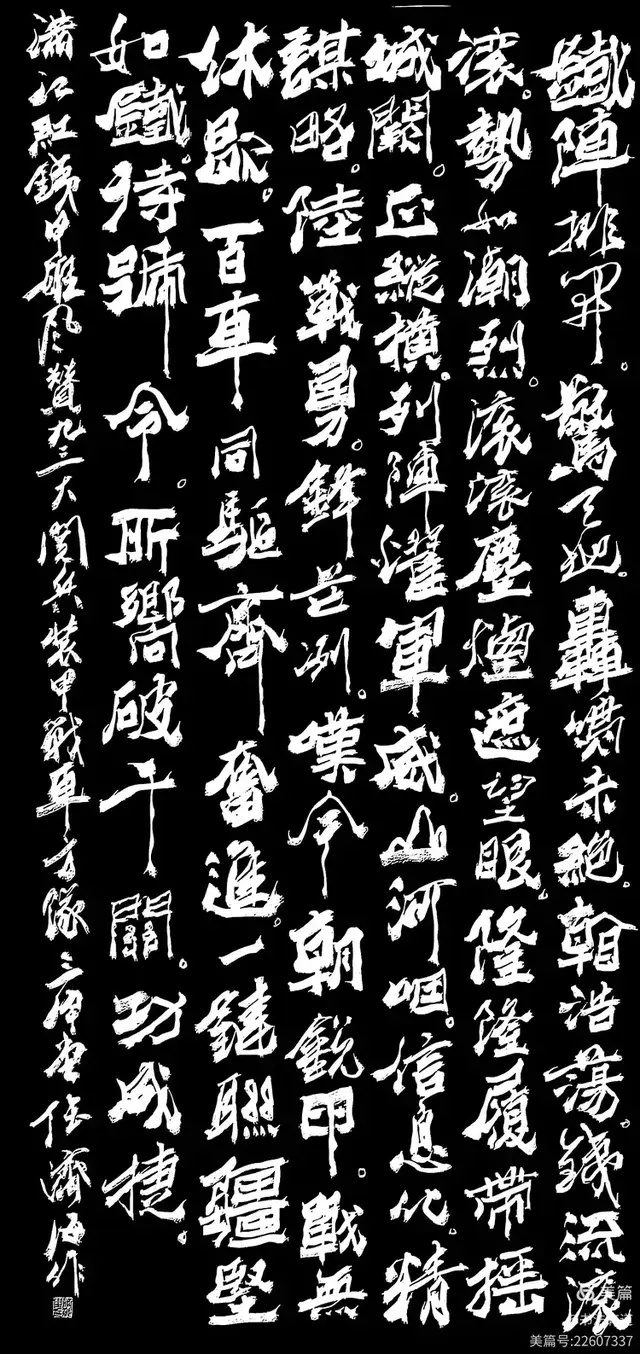 鐵陣排開。驚天地。轟未絕。浩蕩。銕流滾
滾。勢如潮烈。滾滾塵煙遮望眼。隆隆履帶摇
城闕。正縱橫。列陣濯軍威。山河咽。信息化。精
謀略。陸戰勇。鋒芒冽。嘆今朝銳甲。戰無
休歇。百車同驅齊奮進。一鏈聯疆堅
如鐵。待號令。所嚮破千關。功成捷。
滿江紅銕甲雄風贊九三大閱兵裝甲戰車方隊三堂任濟海作
美篇
美篇号:22607337